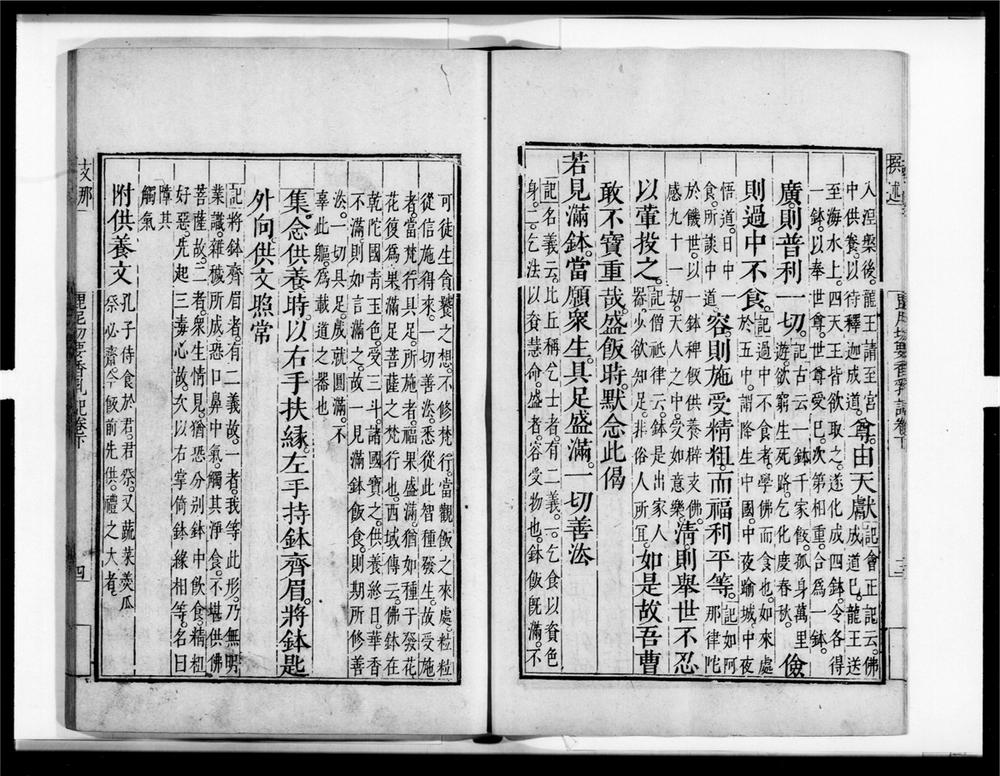 撰述
入涅槃後。龍王請至宮
中供養。以待釋迦成道。尊由天獻記會正記云。佛
成道已。龍王送
至海水上。四天王皆欲取之。遂化成四鉢。令各得
一鉢。以奉世尊。世尊受已。次第相重。合爲一鉢。
廣則普利一切。記古云。一鉢千家飯。孤身萬里
遊。欲窮生死路。乞化度春秋。儉
則過中不食。記過中不食者。學佛而食也。如來處
於五中。謂降生中國。中夜踰城。中夜
悟道。日中一
食。所談中道。容則施受精粗。而福利平等。記如阿
那律吒
於饑世。以一鉢稗飯。供養辟支佛。
感九十一劫。天人之中。受如意樂。清則舉世不忍
以葷投之。記僧祇律云。鉢是出家人
器。少欲知足。非俗人所宜。如是故吾曹
敢不寶重哉。盛飯時。默念此偈
若見滿鉢。當願衆生。具足盛滿。一切善法
記名義云。比丘稱乞士者。有二義。一。乞食以資色
身。二。乞法以資慧命。盛者。容受物也。鉢飯既滿。不
可徒生貪饕之想。不修梵行。當觀飯之來處。粒粒
從信施得來。一切善法。悉從此智種發生。故受施
者。當梵行具足。所施者。福果盛滿。猶如種子發花。
花復爲果滿足。菩薩之梵行也。西域傳云。佛鉢在
乾陀國。青玉色。受三斗。諸國寶之。供養終日。華香
不滿。則如言滿之。故一見滿鉢飯食。則期所修善
法。一切具足。成就圓滿。不
辜此軀。爲載道之器也
集。念供養時。以右手扶緣。左手持鉢齊眉。將鉢匙
外向供文照常
記將鉢齊眉者。有二義故。一者。我等此形。乃無明
業識。雜穢所成。恐口鼻中氣。觸其淨食。不堪供佛
菩薩故。二者。衆生情見。猶恐分別鉢中飲食。精粗
好惡。先起三毒心故。次以右掌倚鉢緣相等。名曰
障其
觸氣
附供養文孔子侍食於君。君祭。又蔬菜羹瓜
祭。必齊。今飯前先供。禮之大者。
支那
毘尼切要香乳記卷下
四